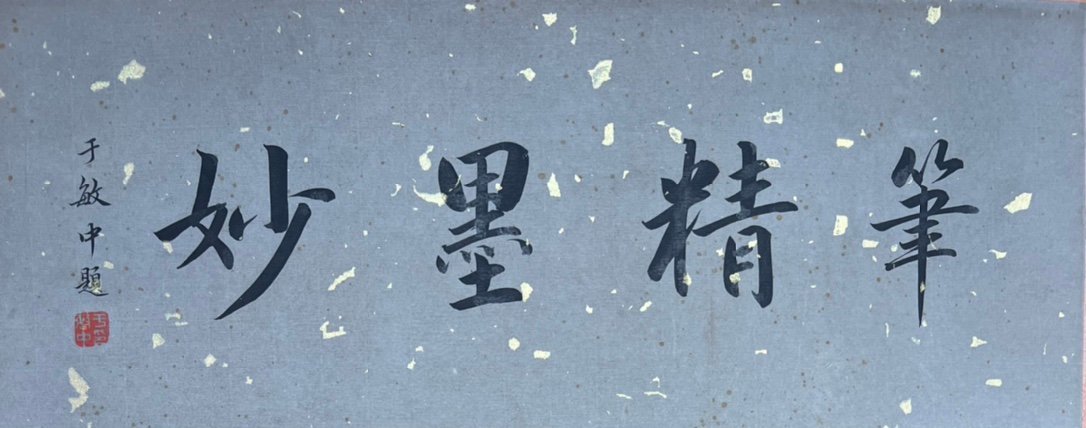 筆精墨妙
于敏中題